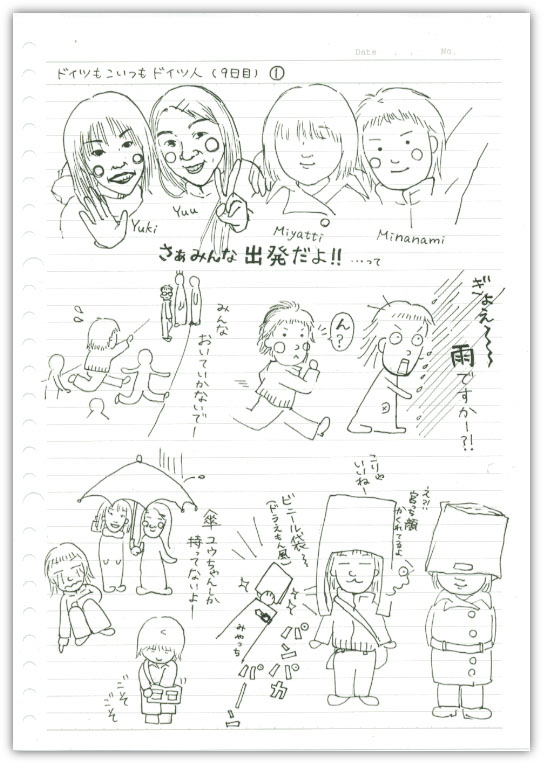 Date . . No.
ドイツもこいつもドイツ人(9日目) ①
Yuki
Yuu
Miyatti
Minanami
さぁみんな出発だよ!! …って
みんな
おいていかないでー
ん?
ぎょえ〜〜
雨ですかー?!
傘ユウちゃんしか
持ってないよー
ごそごそ
ビニール袋〜
(ドラえもん風)
みやっち
パンパカパーン
こりゃ
いいねー
えっ!!
宮っち顔
かくれてるよ